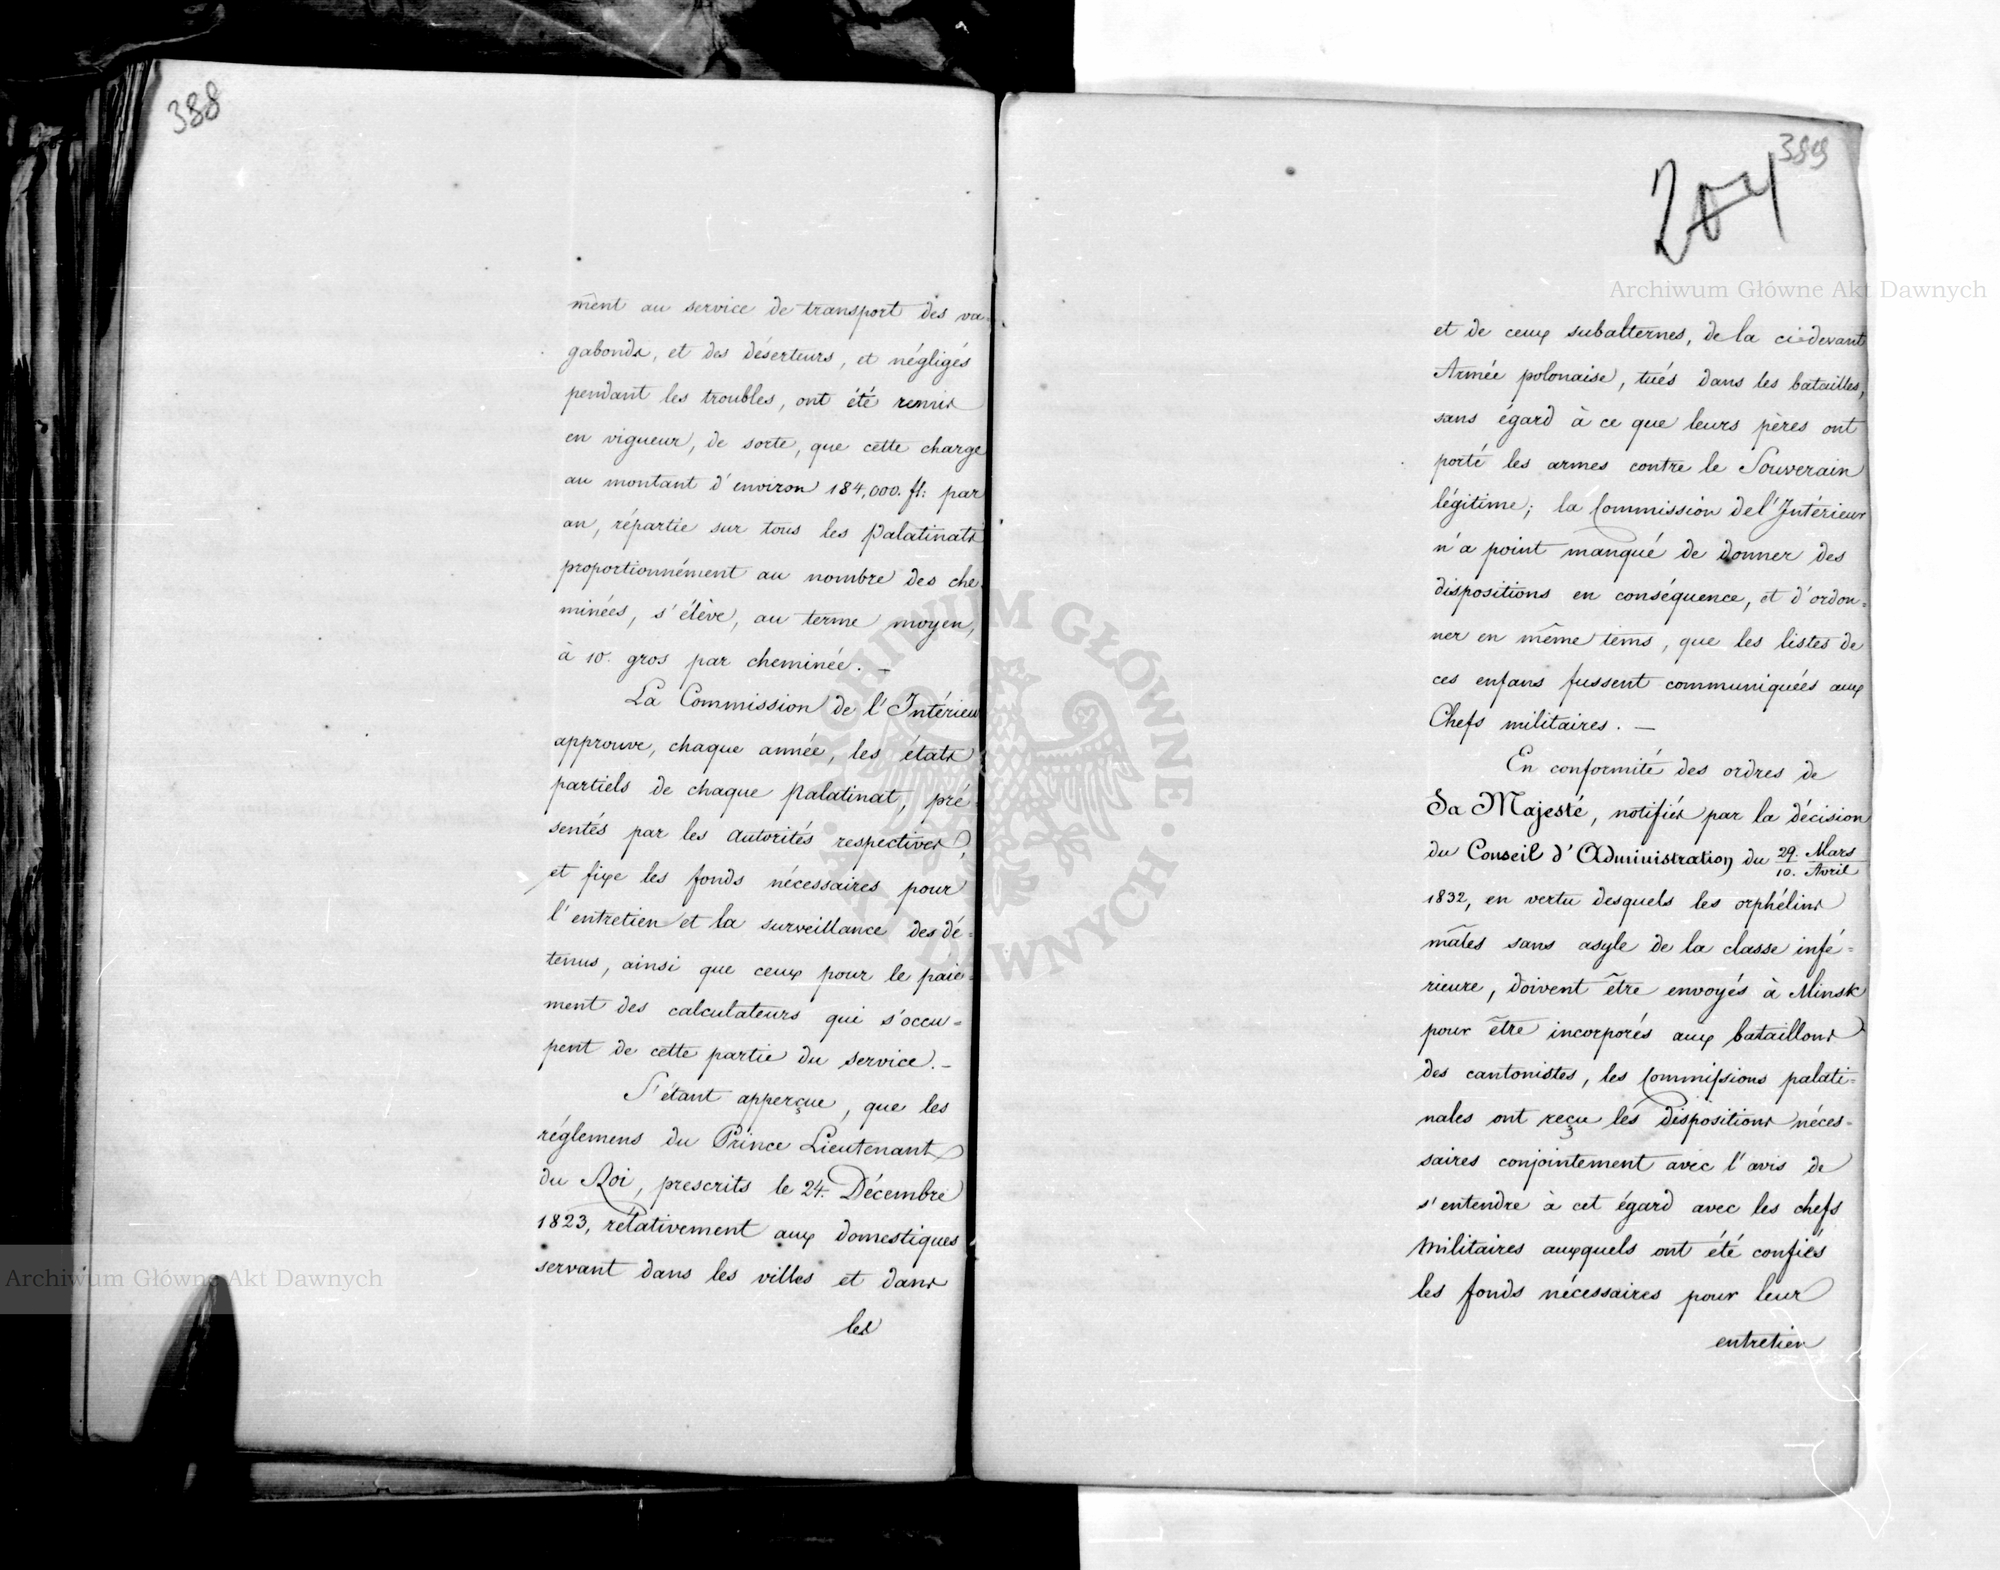 388
ment au service de transport des va-
gabonds, et des déserteurs, et négligés
pendant les troubles, ont été remis
en vigueur, de sorte, que cette charge
au montant d'environ 184,000. fl: par
an, répartie sur tous les Palatinats
proportionnément au nombre des che-
minées, s'élève, au terme moyen,
à 10. gros par cheminée. —
La Commission de l'Intérieur
approuve, chaque année, les états
partiels de chaque Palatinat, pré-
sentés par les autorités respectives,
et fixe les fonds nécessaires pour
l'entretien et la surveillance des dé-
tenus, ainsi que ceux pour le paie-
ment des calculateurs qui s'occu-
pent de cette partie du service. —
S'étant apperçue, que les
réglemens du Prince Lieutenant
du Roi, prescrits le 24. Décembre
1823, rélativement aux domestiques
servant dans les villes et dans
les
389
204
et de ceux subalternes, de la ci-devant
Armée polonaise, tués dans les batailles,
sans égard à ce que leurs pères ont
porté les armes contre le Souverain
légitime; la Commission de l'Intérieur
n'a point manqué de donner des
dispositions en conséquence, et d'ordon-
ner en même tems, que les listes de
ces enfans fussent communiquées aux
Chefs militaires. —
En conformité des ordres de
Sa Majesté, notifiés par la décision
du Conseil d'Administration du 29. Mars / 10. Avril
1832, en vertu desquels les orphélins
mâles sans asyle de la classe infé-
rieure, doivent être envoyés à Minsk
pour être incorporés aux bataillons
des cantonistes, les Commissions palati-
nales ont reçu les dispositions néces-
saires conjointement avec l'avis de
s'entendre à cet égard avec les chefs
militaires auxquels ont été confiés
les fonds nécessaires pour leur
entretien
Archiwum Główne Akt Dawnych
Archiwum Główne Akt Dawnych
ARCHIWUM GŁÓWNE AKT DAWNYCH